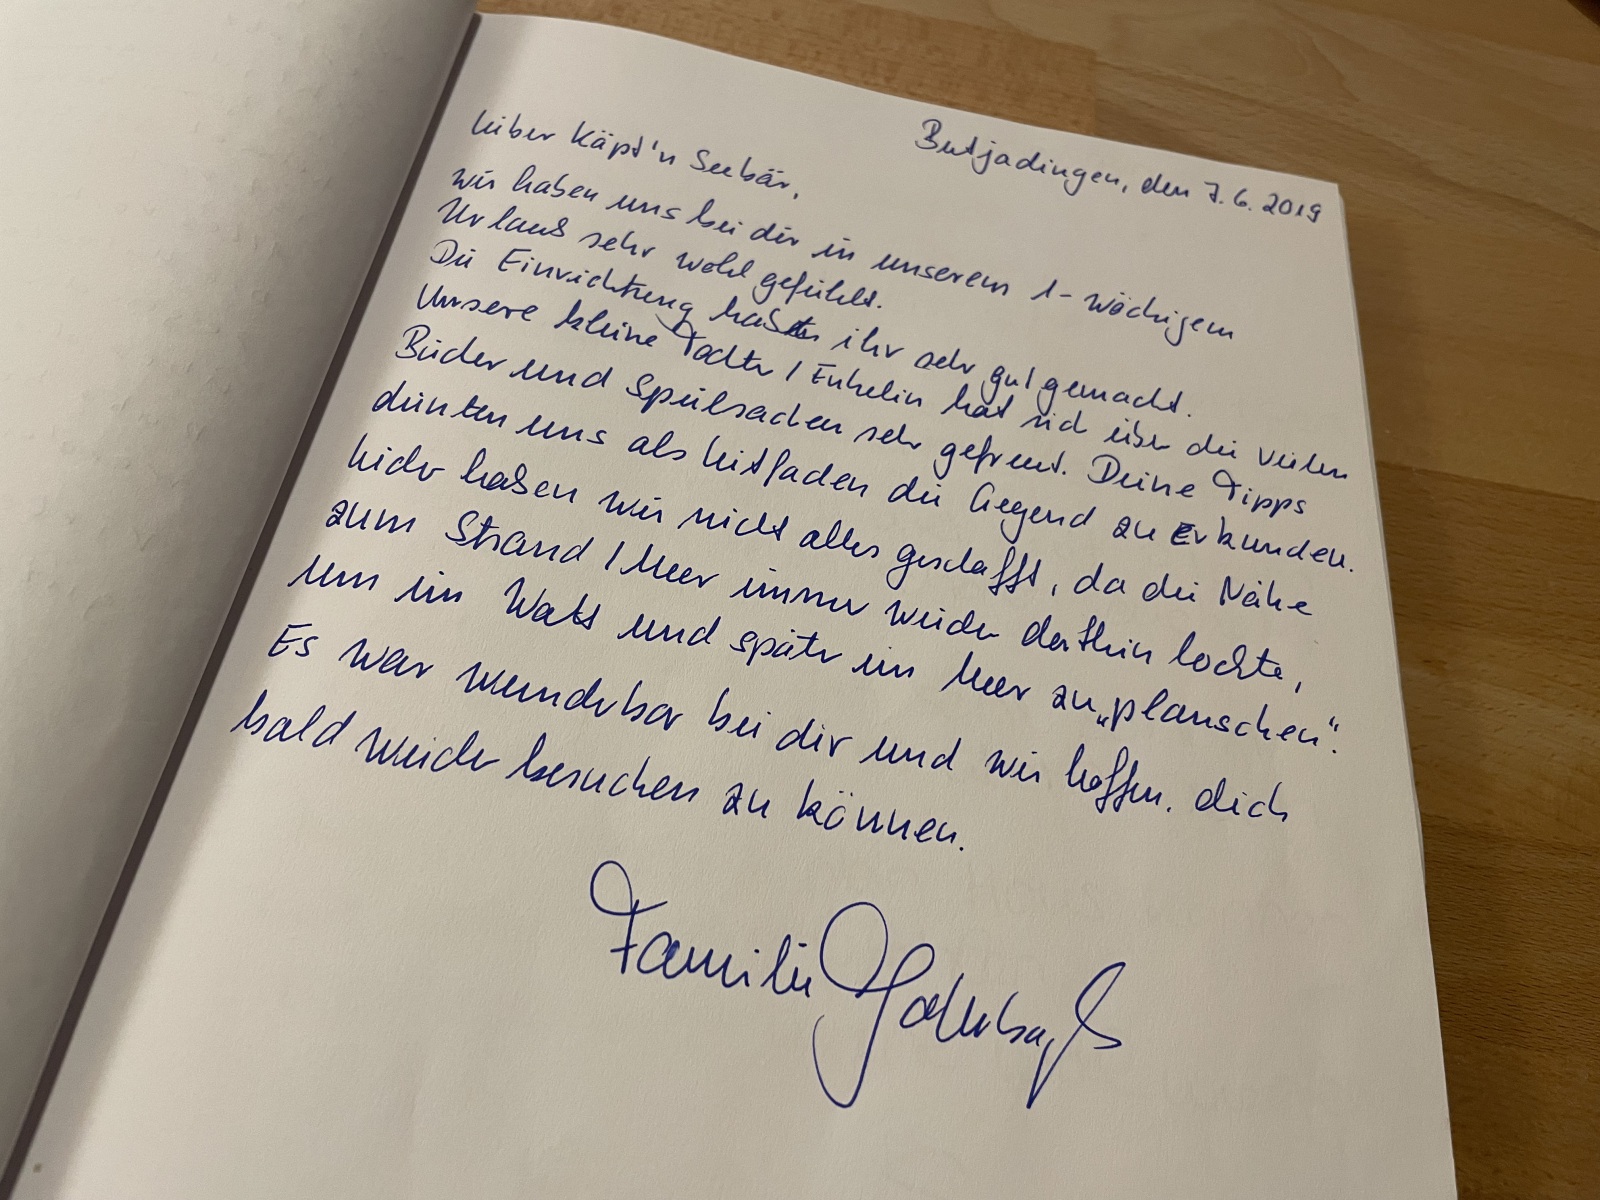 Butjadingen, den 7.6.2019
Lieber Käpt'n Seebär,
wir haben uns bei dir in unserem 1-wöchigem
Urlaub sehr wohl gefühlt.
Die Einrichtung habt ihr sehr gut gemacht.
Unsere kleine Tochter / Enkelin hat sich über die vielen
Bücher und Spielsachen sehr gefreut. Deine Tipps
dienten uns als Leitfaden die Gegend zu Erkunden.
Leider haben wir nicht alles geschafft, da die Nähe
zum Strand / Meer immer wieder dorthin lockte,
um im Watt und später im Meer zu „planschen".
Es war wunderbar bei dir und wir hoffen, dich
bald wieder besuchen zu können.
Familie